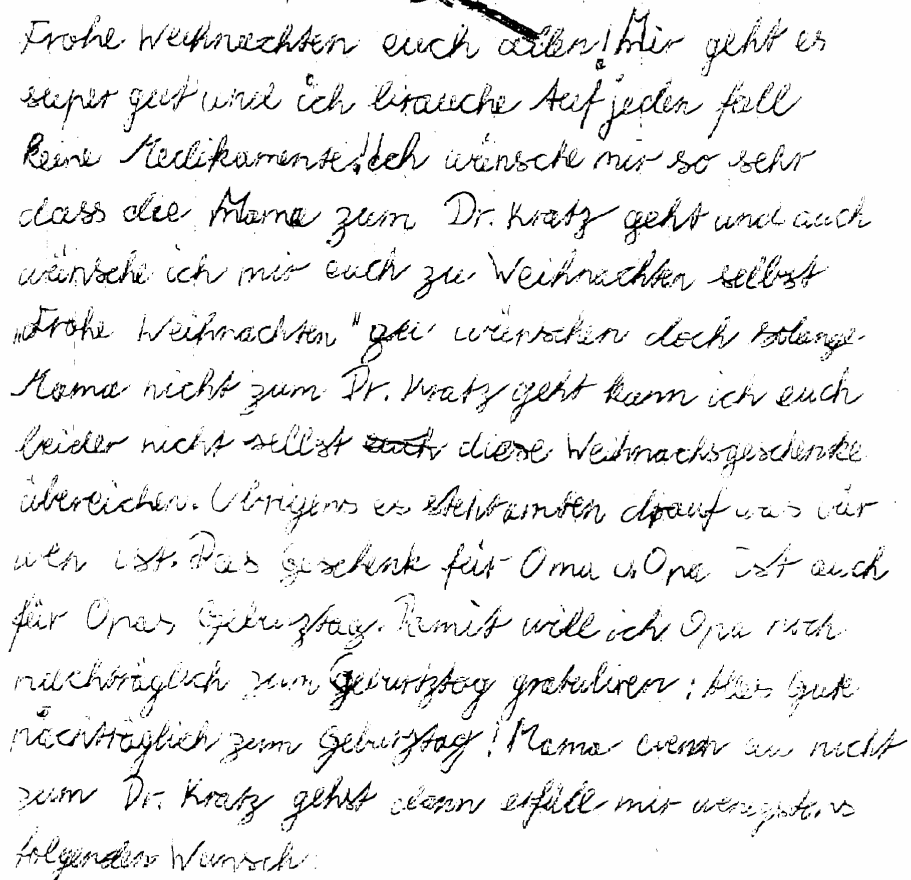 Frohe Weihnachten euch allen! Mir geht es
super gut und ich brauche Auf jeden fall
keine Medikamente! Ich wünsche mir so sehr
dass die Mama zum Dr. Kratz geht und auch
wünsche ich mir euch zu Weihnachten selbst
"Frohe Weihnachten" zu wünschen doch solange
Mama nicht zum Dr. Kratz geht kann ich euch
leider nicht selbst euch diese Weihnachsgeschenke
übereichen. Übrigens es steht drauf was vür
wen ist. Das Geschenk für Oma u Opa ist auch
für Opas Geburztag. Damit will ich Opa noch
nachträglich zum Geburtztag gratuliren: Alles Gute
nachträglich zum Geburztag! Mama wenn du nicht
zum Dr. Kratz gehst dann erfüll mir wenigstens
folgenden Wunsch: